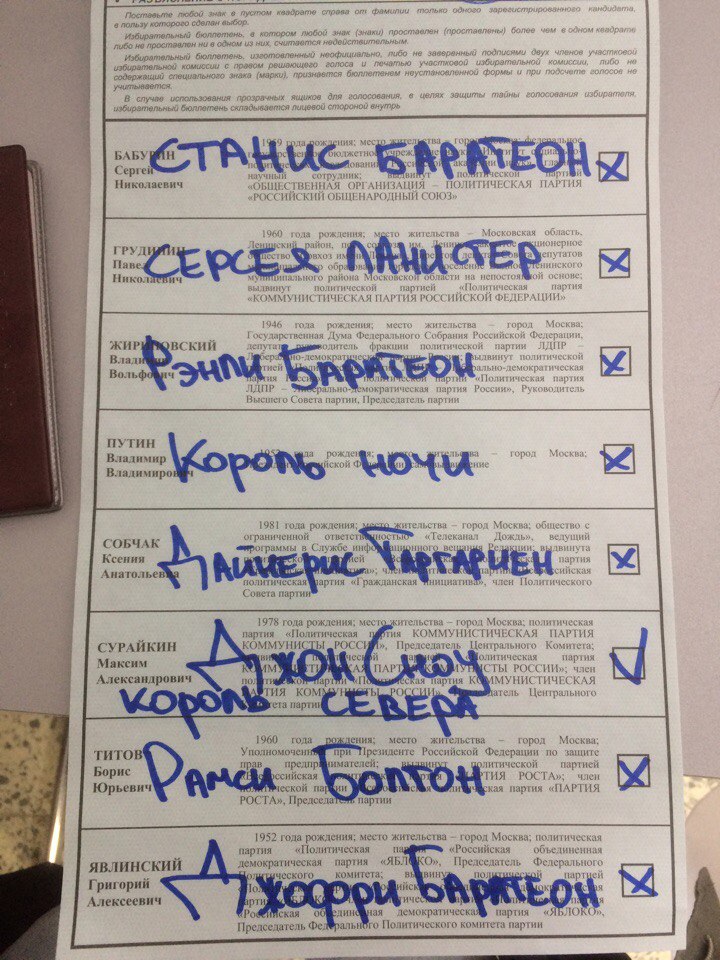 Поставьте любой знак в пустом квадрате справа от фамилии только одного зарегистрированного кандидата,
в пользу которого сделан выбор.
Избирательный бюллетень, в котором любой знак (знаки) проставлен (проставлены) более чем в одном квадрате
либо не проставлен ни в одном из них, считается недействительным.
Избирательный бюллетень, изготовленный неофициально, либо не заверенный подписями двух членов участковой
избирательной комиссии с правом решающего голоса и печатью участковой избирательной комиссии, либо не
содержащий специального знака (марки), признается бюллетенем неустановленной формы и при подсчете голосов не
учитывается.
В случае использования прозрачных ящиков для голосования, в целях защиты тайны голосования избирателя,
избирательный бюллетень складывается лицевой стороной внутрь
БАБУРИН
Сергей
Николаевич
СТАНИС БАРАТЕОН
научный сотрудник; выдвинут политической партией
«ОБЩЕСТВЕННАЯ ОРГАНИЗАЦИЯ – ПОЛИТИЧЕСКАЯ ПАРТИЯ
«РОССИЙСКИЙ ОБЩЕНАРОДНЫЙ СОЮЗ»
ГРУДИНИН
Павел
Николаевич
1960 года рождения; место жительства – Московская область,
СЕРСЕЯ ЛАНИСТЕР
муниципального района Московской области на непостоянной основе;
выдвинут политической партией «Политическая партия
«КОММУНИСТИЧЕСКАЯ ПАРТИЯ РОССИЙСКОЙ ФЕДЕРАЦИИ»
ЖИРИНОВСКИЙ
Владимир
Вольфович
1946 года рождения; место жительства – город Москва;
Государственная Дума Федерального Собрания Российской Федерации,
депутат, руководитель фракции политической партии ЛДПР –
РЭНЛИ БАРАТЕОН
ЛДПР – Либерально-демократическая партия России», Руководитель
Высшего Совета партии, Председатель партии
ПУТИН
Владимир
Владимирович
1952 года рождения; место жительства – город Москва;
Король ночи
СОБЧАК
Ксения
Анатольевна
1981 года рождения; место жительства – город Москва; общество с
ограниченной ответственностью «Телеканал Дождь», ведущий
программы в Службе информационного вещания Редакции; выдвинута
ДАЙНЕРИС ТАРГАРИЕН
политическая партия «Гражданская инициатива», член Политического
Совета партии
СУРАЙКИН
Максим
Александрович
1978 года рождения; место жительства – город Москва; политическая
партия «Политическая партия КОММУНИСТИЧЕСКАЯ ПАРТИЯ
КОММУНИСТЫ РОССИИ», Председатель Центрального Комитета;
ДЖОН СНОУ
КОРОЛЬ СЕВЕРА
ТИТОВ
Борис
Юрьевич
1960 года рождения; место жительства – город Москва;
Уполномоченный при Президенте Российской Федерации по защите
прав предпринимателей; выдвинут политической партией
РАМСИ БОЛТОН
РОСТА», Председатель партии
ЯВЛИНСКИЙ
Григорий
Алексеевич
1952 года рождения; место жительства – город Москва; политическая
партия «Политическая партия «Российская объединенная
демократическая партия «ЯБЛОКО», Председатель Федерального
Политического комитета; выдвинут политической партией
ДЖОФФРИ БАРАТЕОН
«Российская объединенная демократическая партия «ЯБЛОКО»,
Председатель Федерального Политического комитета партии